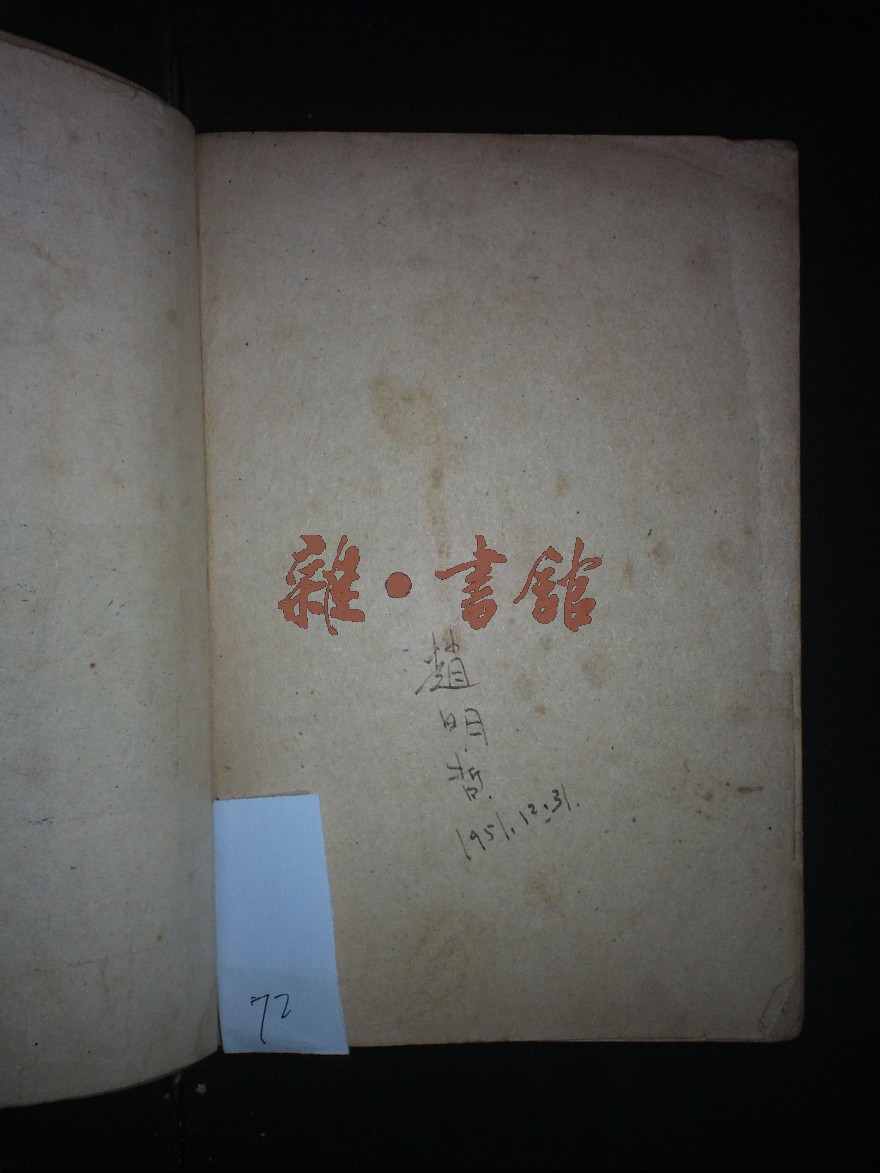 雜·書館
趙
明
哲
1951.12.31.
72